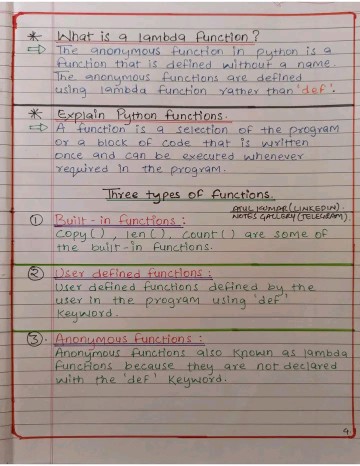 * What is a lambda function?
⇒ The anonymous function in python is a
function that is defined without a name.
The anonymous functions are defined
using lambda function rather than 'def'.
* Explain Python functions.
⇒ A function is a selection of the program
or a block of code that is written
once and can be executed whenever
required in the program.
Three types of functions.
ATUL KUMAR (LINKEDIN).
NOTES GALLERY (TELEGRAM)
① Built-in functions :
Copy( ), len( ), count( ) are some of
the built-in functions.
② User defined functions :
User defined functions defined by the
user in the program using 'def'
keyword.
③. Anonymous functions :
Anonymous functions also known as lambda
functions because they are not declared
with the 'def' keyword.
4